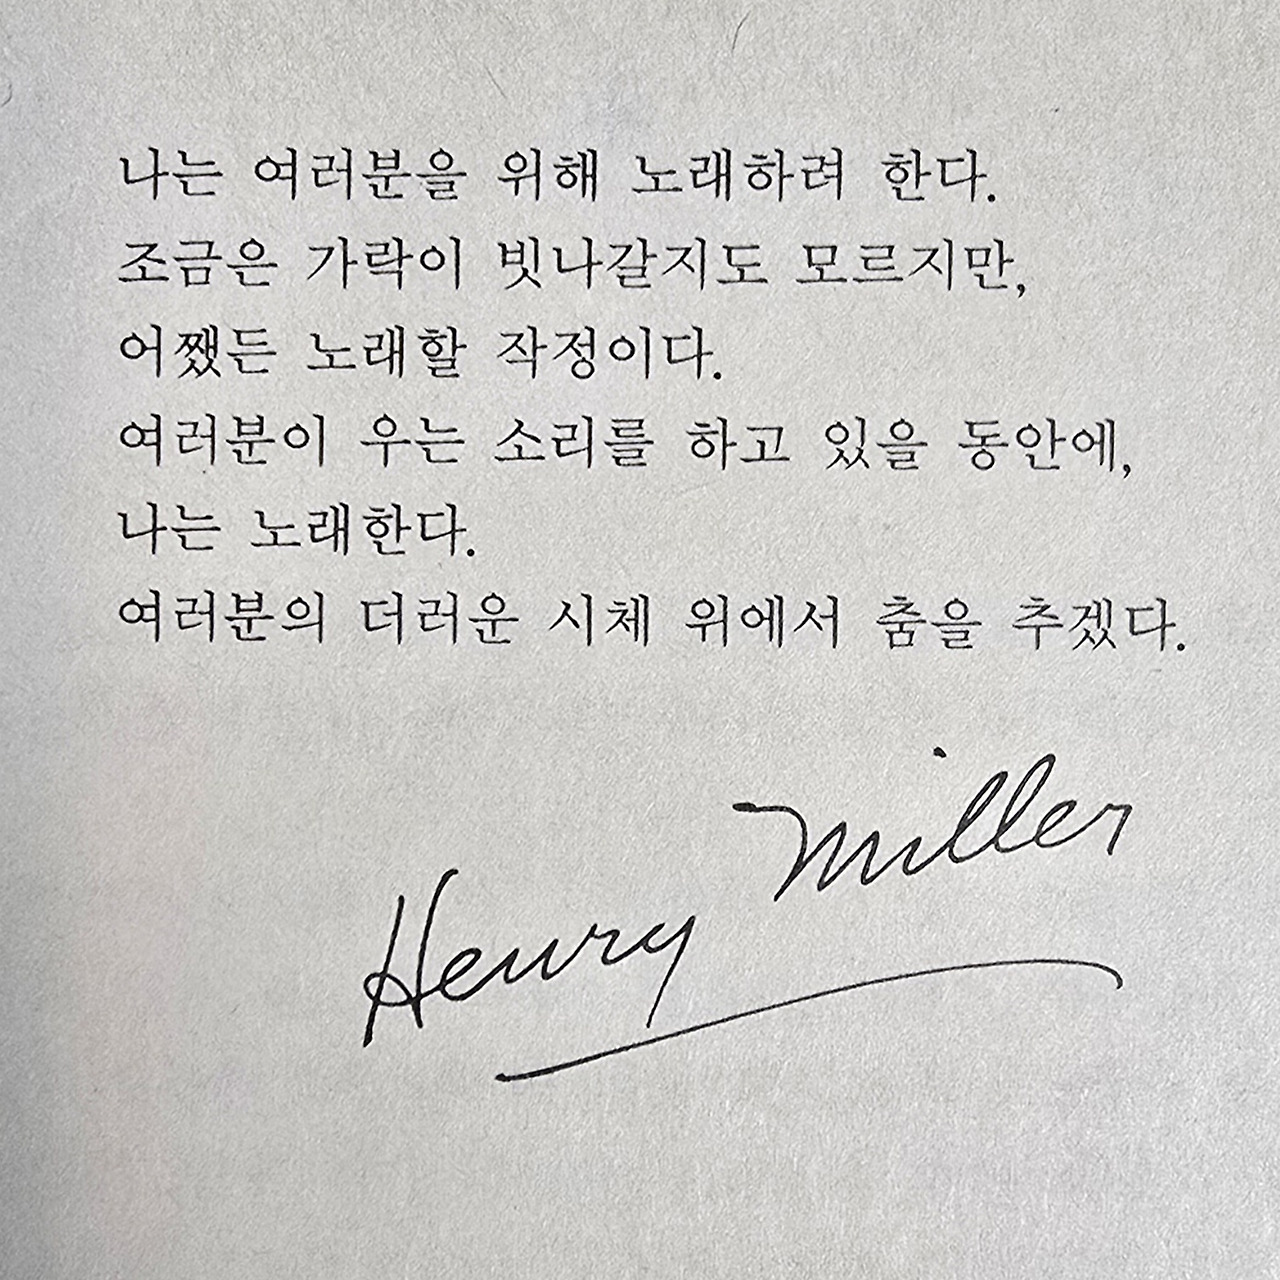 나는 여러분을 위해 노래하려 한다.
조금은 가락이 빗나갈지도 모르지만,
어쨌든 노래할 작정이다.
여러분이 우는 소리를 하고 있을 동안에,
나는 노래한다.
여러분의 더러운 시체 위에서 춤을 추겠다.
Henry Miller